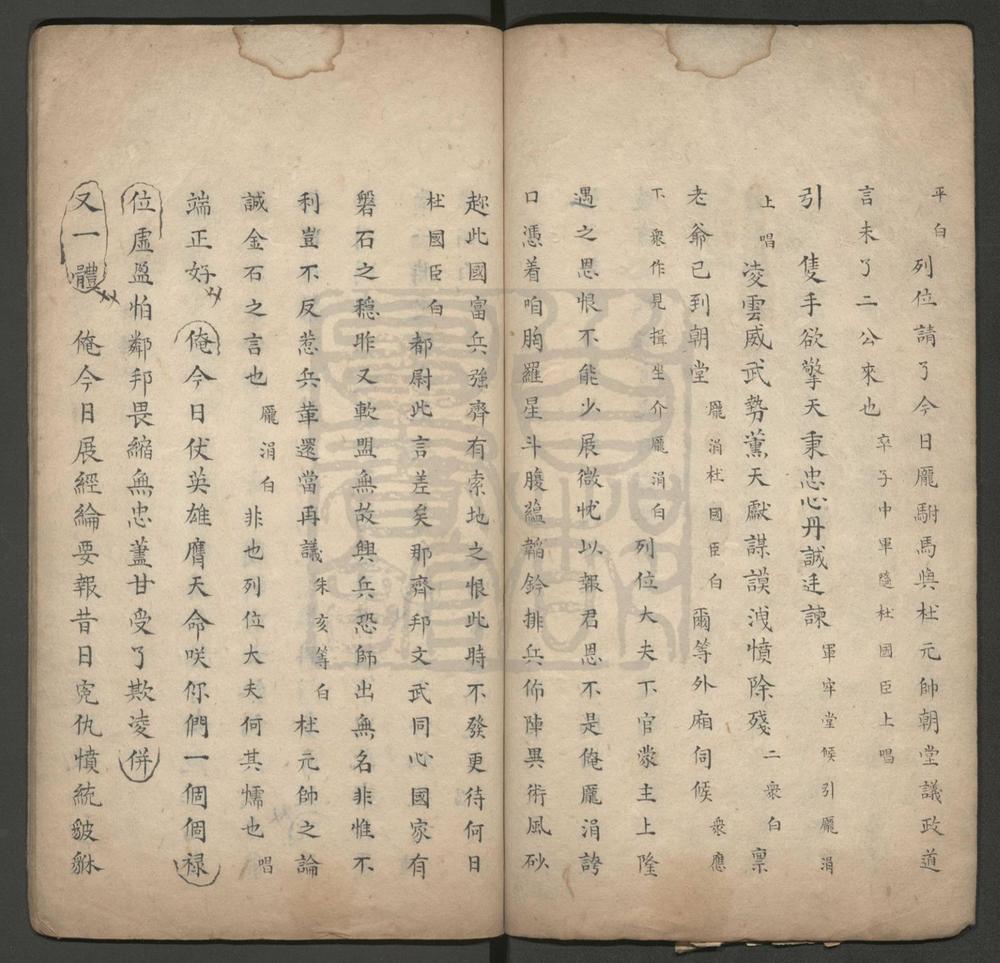 平白 列位請了今日龐駙馬與杜元帥朝堂議政道
言未了二公來也 卒子中軍隨杜國臣上唱
引 隻手欲擎天秉忠心丹誠廷諫 軍牢堂候引龐涓
上唱 凌雲威武勢薰天獻謀謨洩憤除殘 二衆白 禀
老爺已到朝堂 龐涓杜國臣白 爾等外廂伺候 衆應
下衆作見揖坐介龐涓白 列位大夫下官蒙主上隆
遇之恩恨不能少展微忱以報君恩不是俺龐涓誇
口憑着咱胸羅星斗腹蘊韜鈐排兵佈陣異術風砂
趂此國富兵強齊有索地之恨此時不發更待何日
杜國臣白 都尉此言差矣那齊邦文武同心國家有
磐石之穩昨又歃盟無故興兵恐師出無名非惟不
利豈不反惹兵革還當再議 朱亥等白 杜元帥之論
誠金石之言也 龐涓白 非也列位大夫何其懦也 唱
端正好 俺今日伏英雄膺天命咲你們一個個祿
位虛盈怕鄰邦畏縮無忠藎甘受了欺凌併
又一體 俺今日展經綸要報昔日寃仇憤統貔貅